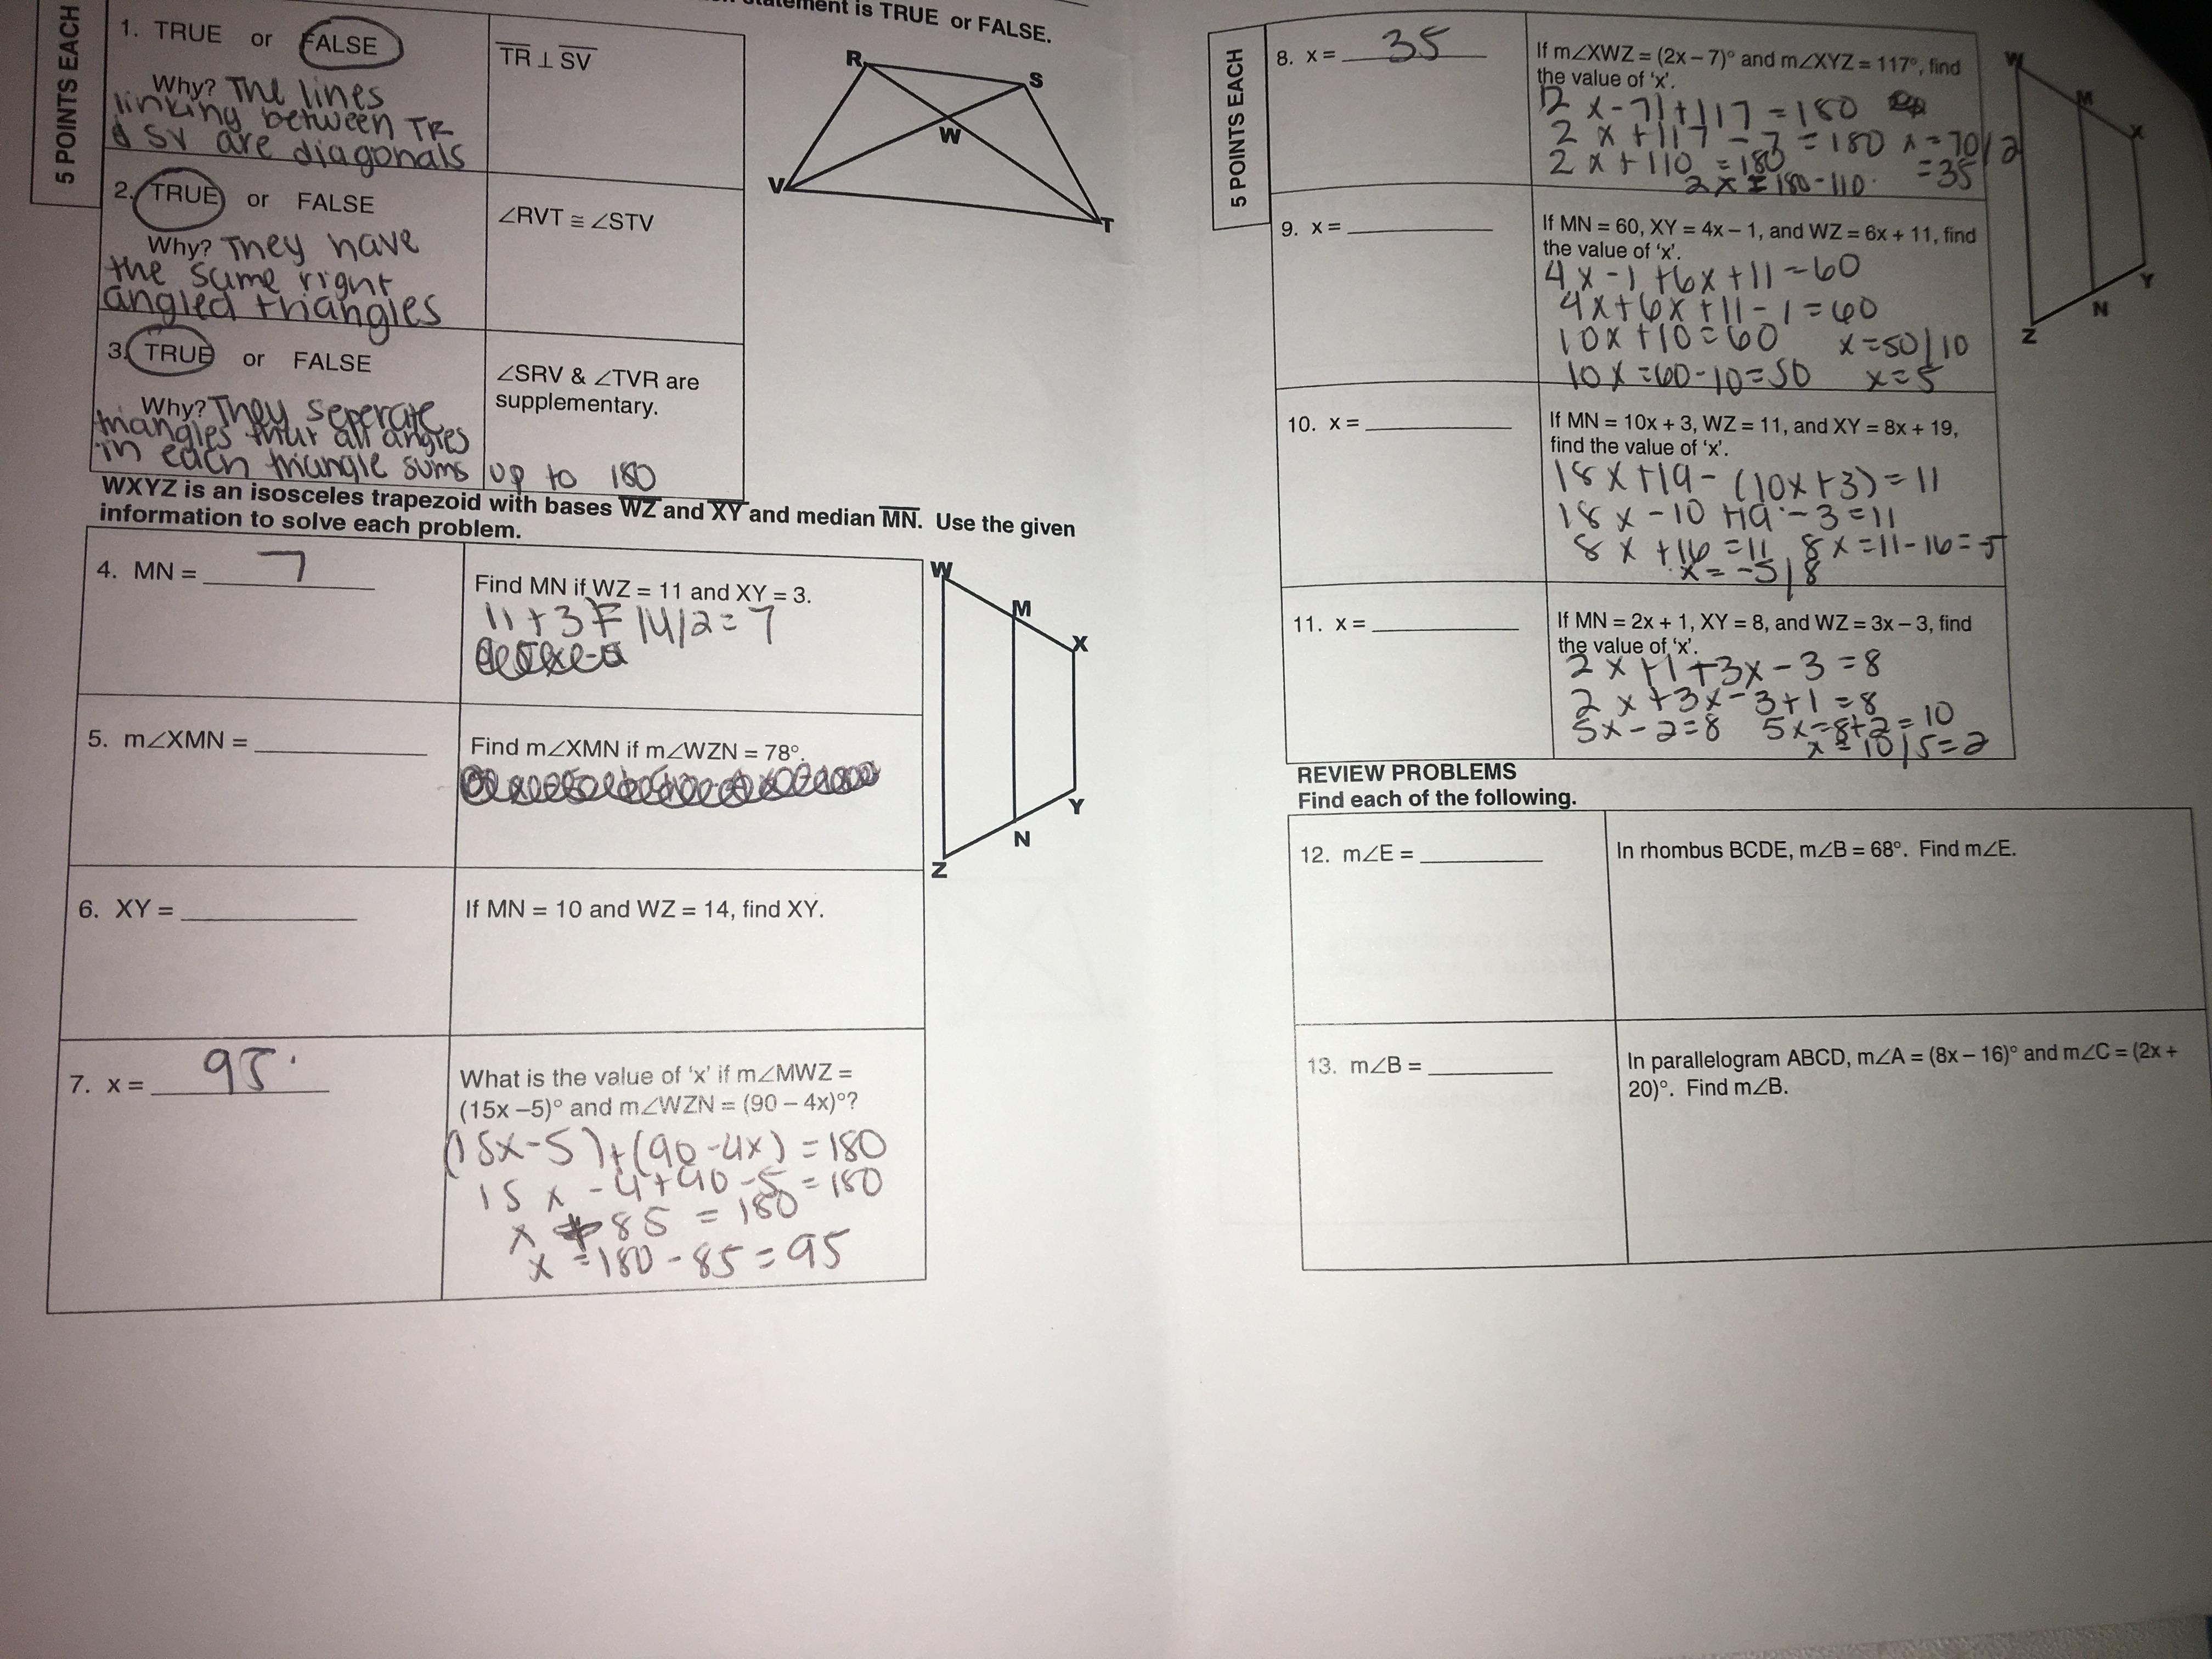 statement is TRUE or FALSE.
5 POINTS EACH
1. TRUE or FALSE
Why? The lines
linking between TR
& SV are diagonals
TR ⊥ SV
2. TRUE or FALSE
Why? They have
the same right
angled triangles
∠RVT ≅ ∠STV
3. TRUE or FALSE
Why? They seperate
triangles that all angles
in each triangle sums up to 180
∠SRV & ∠TVR are
supplementary.
R
S
W
V
T
WXYZ is an isosceles trapezoid with bases WZ and XY and median MN. Use the given
information to solve each problem.
4. MN = 7
Find MN if WZ = 11 and XY = 3.
11 + 3 = 14/2 = 7
5. m∠XMN =
Find m∠XMN if m∠WZN = 78°.
6. XY =
If MN = 10 and WZ = 14, find XY.
7. x = 95
What is the value of 'x' if m∠MWZ =
(15x –5)° and m∠WZN = (90 – 4x)°?
(15x-5)+(90-4x) = 180
15x - 4+90-5 = 180
x + 85 = 180
x = 180 - 85 = 95
W
M
X
Y
N
Z
5 POINTS EACH
8. x = 35
If m∠XWZ = (2x – 7)° and m∠XYZ = 117°, find
the value of 'x'.
2x-7+117 = 180
2x+117-7 = 180 x = 70/2
2x+110 = 180 = 35
2x = 180-110
9. x =
If MN = 60, XY = 4x – 1, and WZ = 6x + 11, find
the value of 'x'.
4x-1+6x+11=60
4x+6x+11-1=60
10x+10=60 x=50/10
10x=60-10=50 x=5
10. x =
If MN = 10x + 3, WZ = 11, and XY = 8x + 19,
find the value of 'x'.
18x+19-(10x+3)=11
18x-10+19-3=11
8x+16=11 8x=11-16=-5
x=-5/8
11. x =
If MN = 2x + 1, XY = 8, and WZ = 3x – 3, find
the value of 'x'.
2x+1+3x-3=8
2x+3x-3+1=8
5x-2=8 5x=8+2=10
x=10/5=2
W
M
X
Y
N
Z
REVIEW PROBLEMS
Find each of the following.
12. m∠E =
In rhombus BCDE, m∠B = 68°. Find m∠E.
13. m∠B =
In parallelogram ABCD, m∠A = (8x – 16)° and m∠C = (2x +
20)°. Find m∠B.